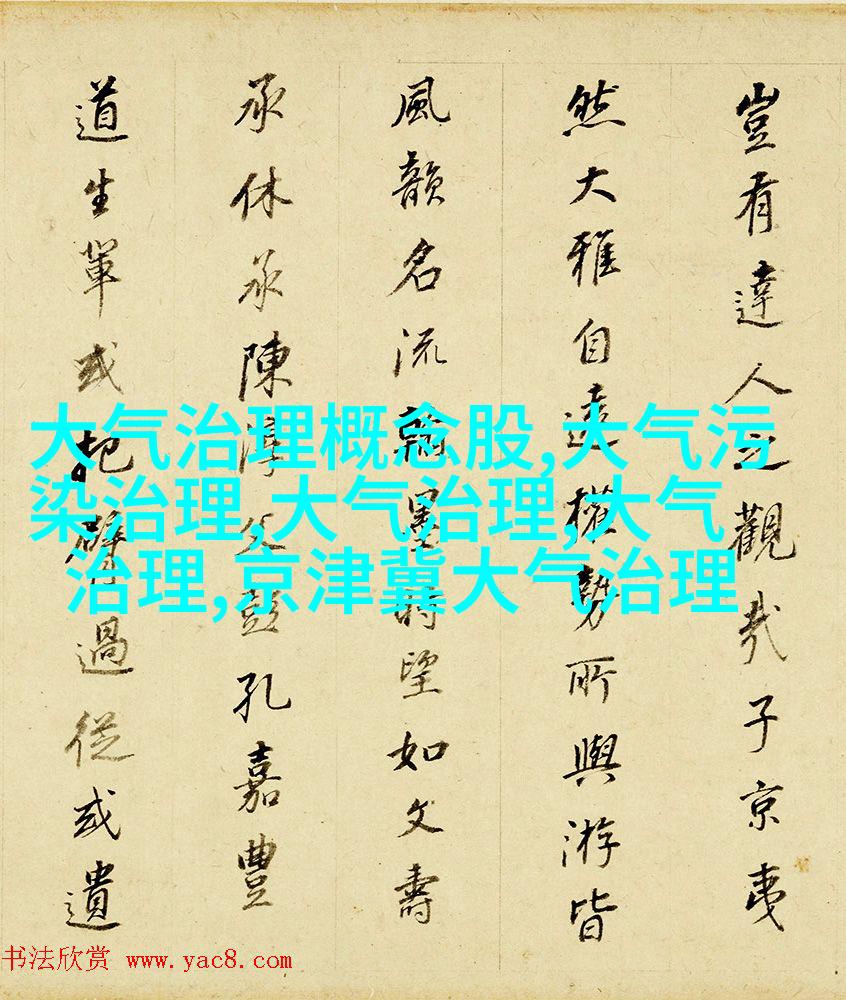 豈有達人之觀哉子京夷
然大雅自遠權勢所與游皆
風韻名流翰墨時望如文壽
承休承陳淳父彭孔嘉豐
道生軰或把臂過從或遺
大气治理概念股,大气污
染治理,大气治理,大气
治理,京津冀大气治理
书法欣赏 www.yac8.com